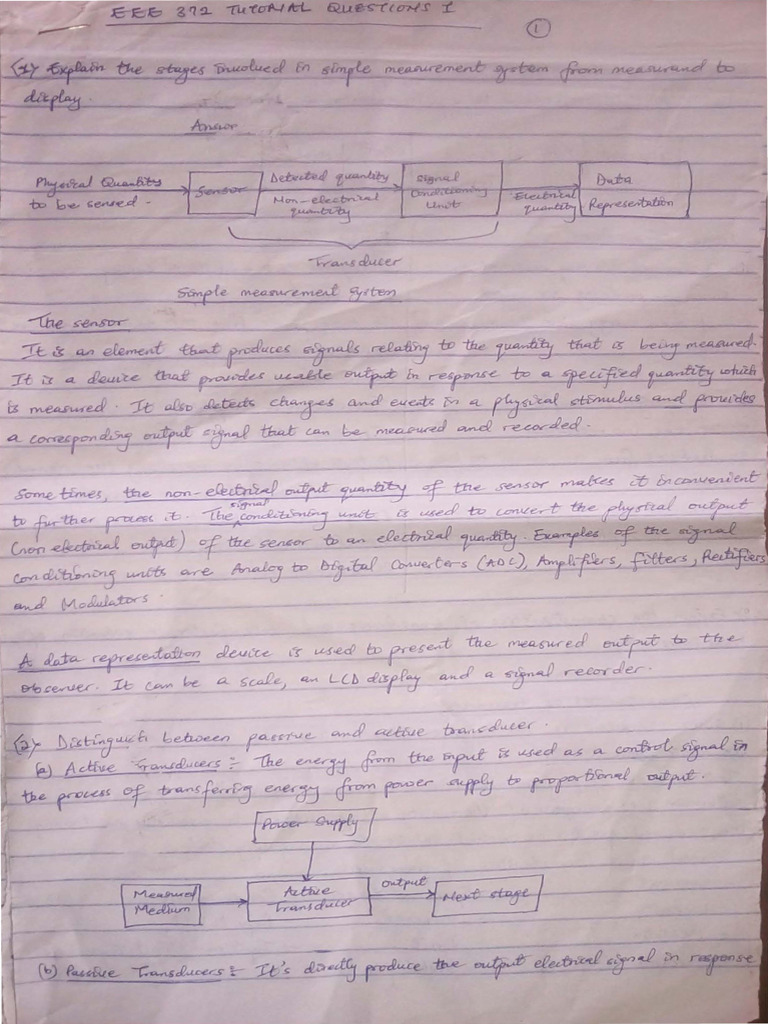 EEE 372 TUTORIAL QUESTIONS 1
1
(1) Explain the stages involved in simple measurement system from measurand to
display.
Answer
Physical Quantity
to be sensed.
Sensor
Detected quantity
Non-electrical
quantity
Signal
Conditioning
Unit
Electrical
quantity
Data
Representation
Transducer
Simple measurement system
The sensor
It is an element that produces signals relating to the quantity that is being measured.
It is a device that provides usable output in response to a specified quantity which
is measured. It also detects changes and events in a physical stimulus and provides
a corresponding output signal that can be measured and recorded.
Some times, the non-electrical output quantity of the sensor makes it inconvenient
to further process it. The signal conditioning unit is used to convert the physical output
(non electrical output) of the sensor to an electrical quantity. Examples of the signal
conditioning units are Analog to Digital Converters (ADC), Amplifiers, filters, Rectifiers
and Modulators.
A data representation device is used to present the measured output to the
observer. It can be a scale, an LCD display and a signal recorder.
(2) Distinguish between passive and active transducer.
(a) Active Transducers:- The energy from the input is used as a control signal in
the process of transferring energy from power supply to proportional output.
Power Supply
Measured
Medium
Active
Transducer
output
Next stage
(b) Passive Transducers:- It's directly produce the output electrical signal in response